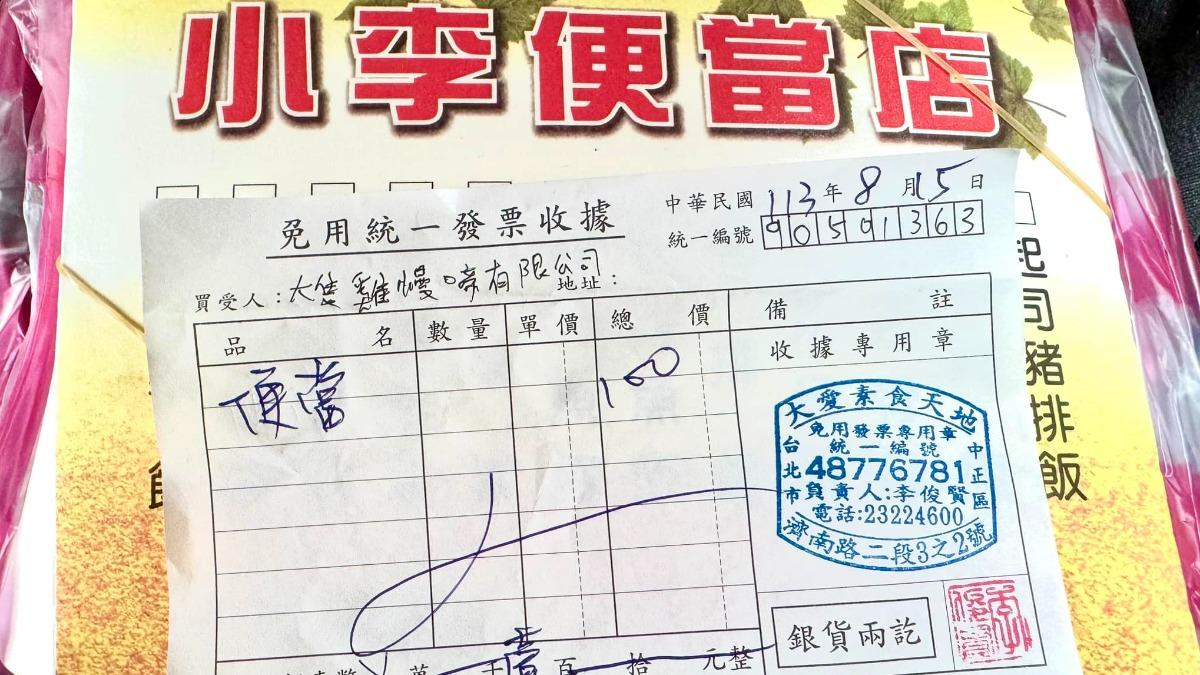 小李便當店
免用統一發票收據
中華民國 113 年 8 月 15 日
統一編號 90591363
買受人：大隻雞慢啼有限公司
地址：
品名 數量 單價 總價 備註
便當 100
收據專用章
大愛素食天地
免用發票專用章
統一編號
48776781
負責人:李俊賢
電話:23224600
台北市 中正區
濟南路二段3之2號
銀貨兩訖
萬 千 壹百 拾 元整
起司豬排飯